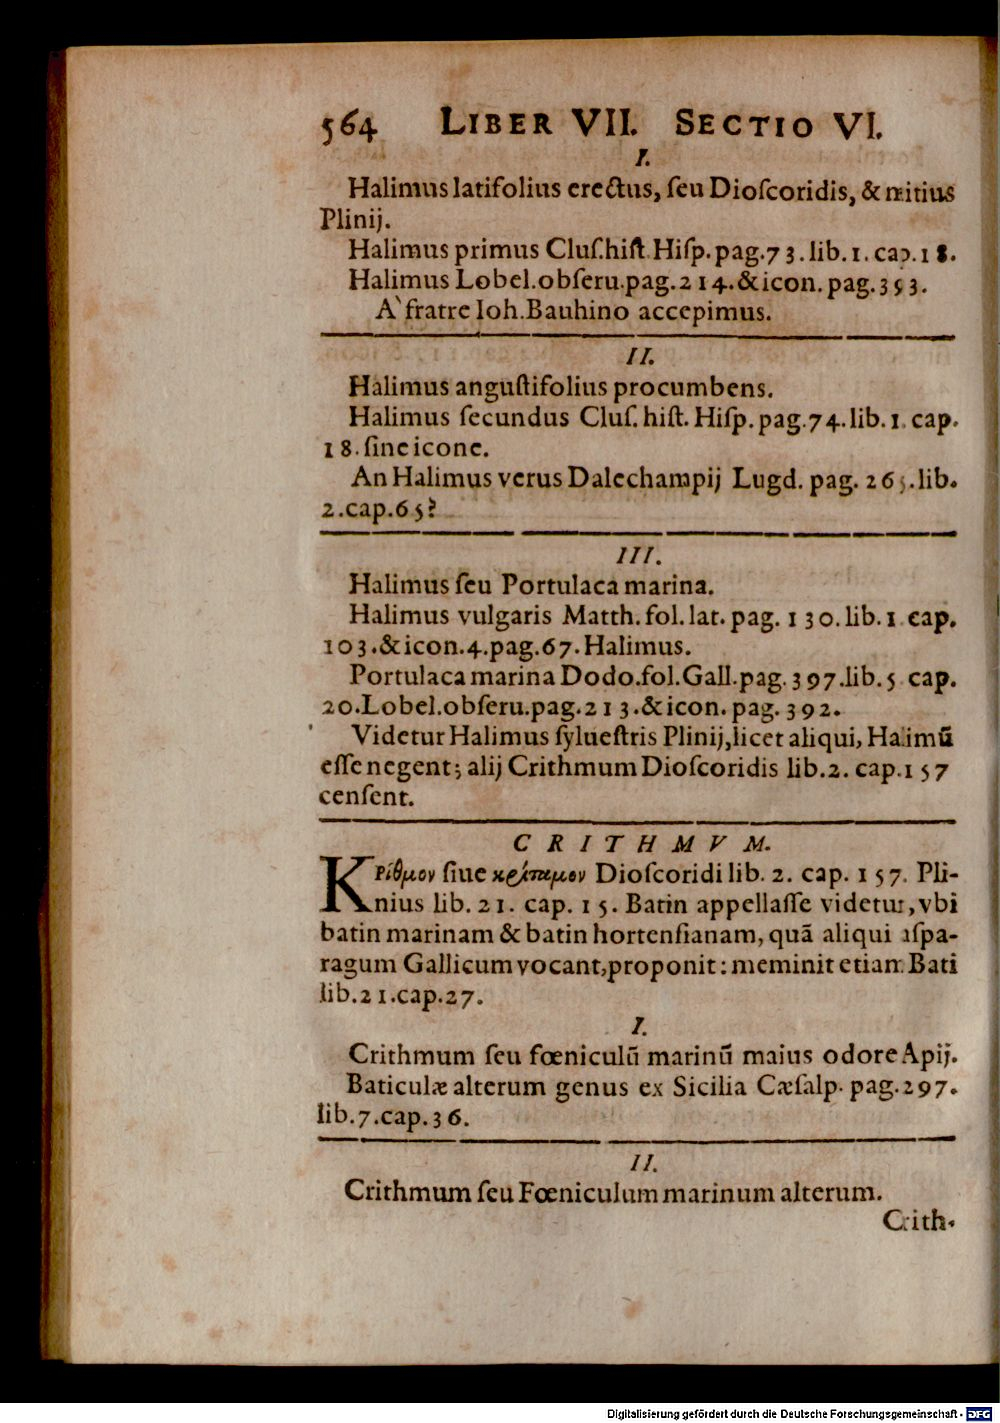 564 LIBER VII. SECTIO VI.
I.
Halimus latifolius erectus, ſeu Dioſcoridis, & mitius
Plinij.
Halimus primus Cluſ.hiſt.Hiſp.pag.73.lib.1.cap.18.
Halimus Lobel.obſeru.pag.214.&icon.pag.393.
A`fratre Ioh.Bauhino accepimus.
II.
Halimus anguſtifolius procumbens.
Halimus ſecundus Cluſ.hiſt.Hiſp.pag.74.lib.1.cap.
18.ſine icone.
An Halimus verus Dalechampij Lugd. pag. 265.lib.
2.cap.65?
III.
Halimus ſeu Portulaca marina.
Halimus vulgaris Matth.fol.lat.pag. 130.lib.1.cap.
103.&icon.4.pag.67.Halimus.
Portulaca marina Dodo.fol.Gall.pag.397.lib.5 cap.
20.Lobel.obſeru.pag.213.&icon.pag.392.
Videtur Halimus ſylueſtris Plinij,licet aliqui, Halimū
eſſe negent; alij Crithmum Dioſcoridis lib.2. cap.157
cenſent.
CRITHMVM.
Κρίθμον ſiue κρίταμον Dioſcoridi lib. 2. cap. 157. Pli-
nius lib. 21. cap. 15. Batin appellaſſe videtur, vbi
batin marinam & batin hortenſianam, quā aliqui aſpa-
ragum Gallicum vocant,proponit: meminit etiam Bati
lib.21.cap.27.
I.
Crithmum ſeu fœniculū marinū maius odore Apij.
Baticulæ alterum genus ex Sicilia Cæſalp. pag.297.
lib.7.cap.36.
II.
Crithmum ſeu Fœniculum marinum alterum.
Crith-
Digitalisierung gefördert durch die Deutsche Forschungsgemeinschaft - DFG